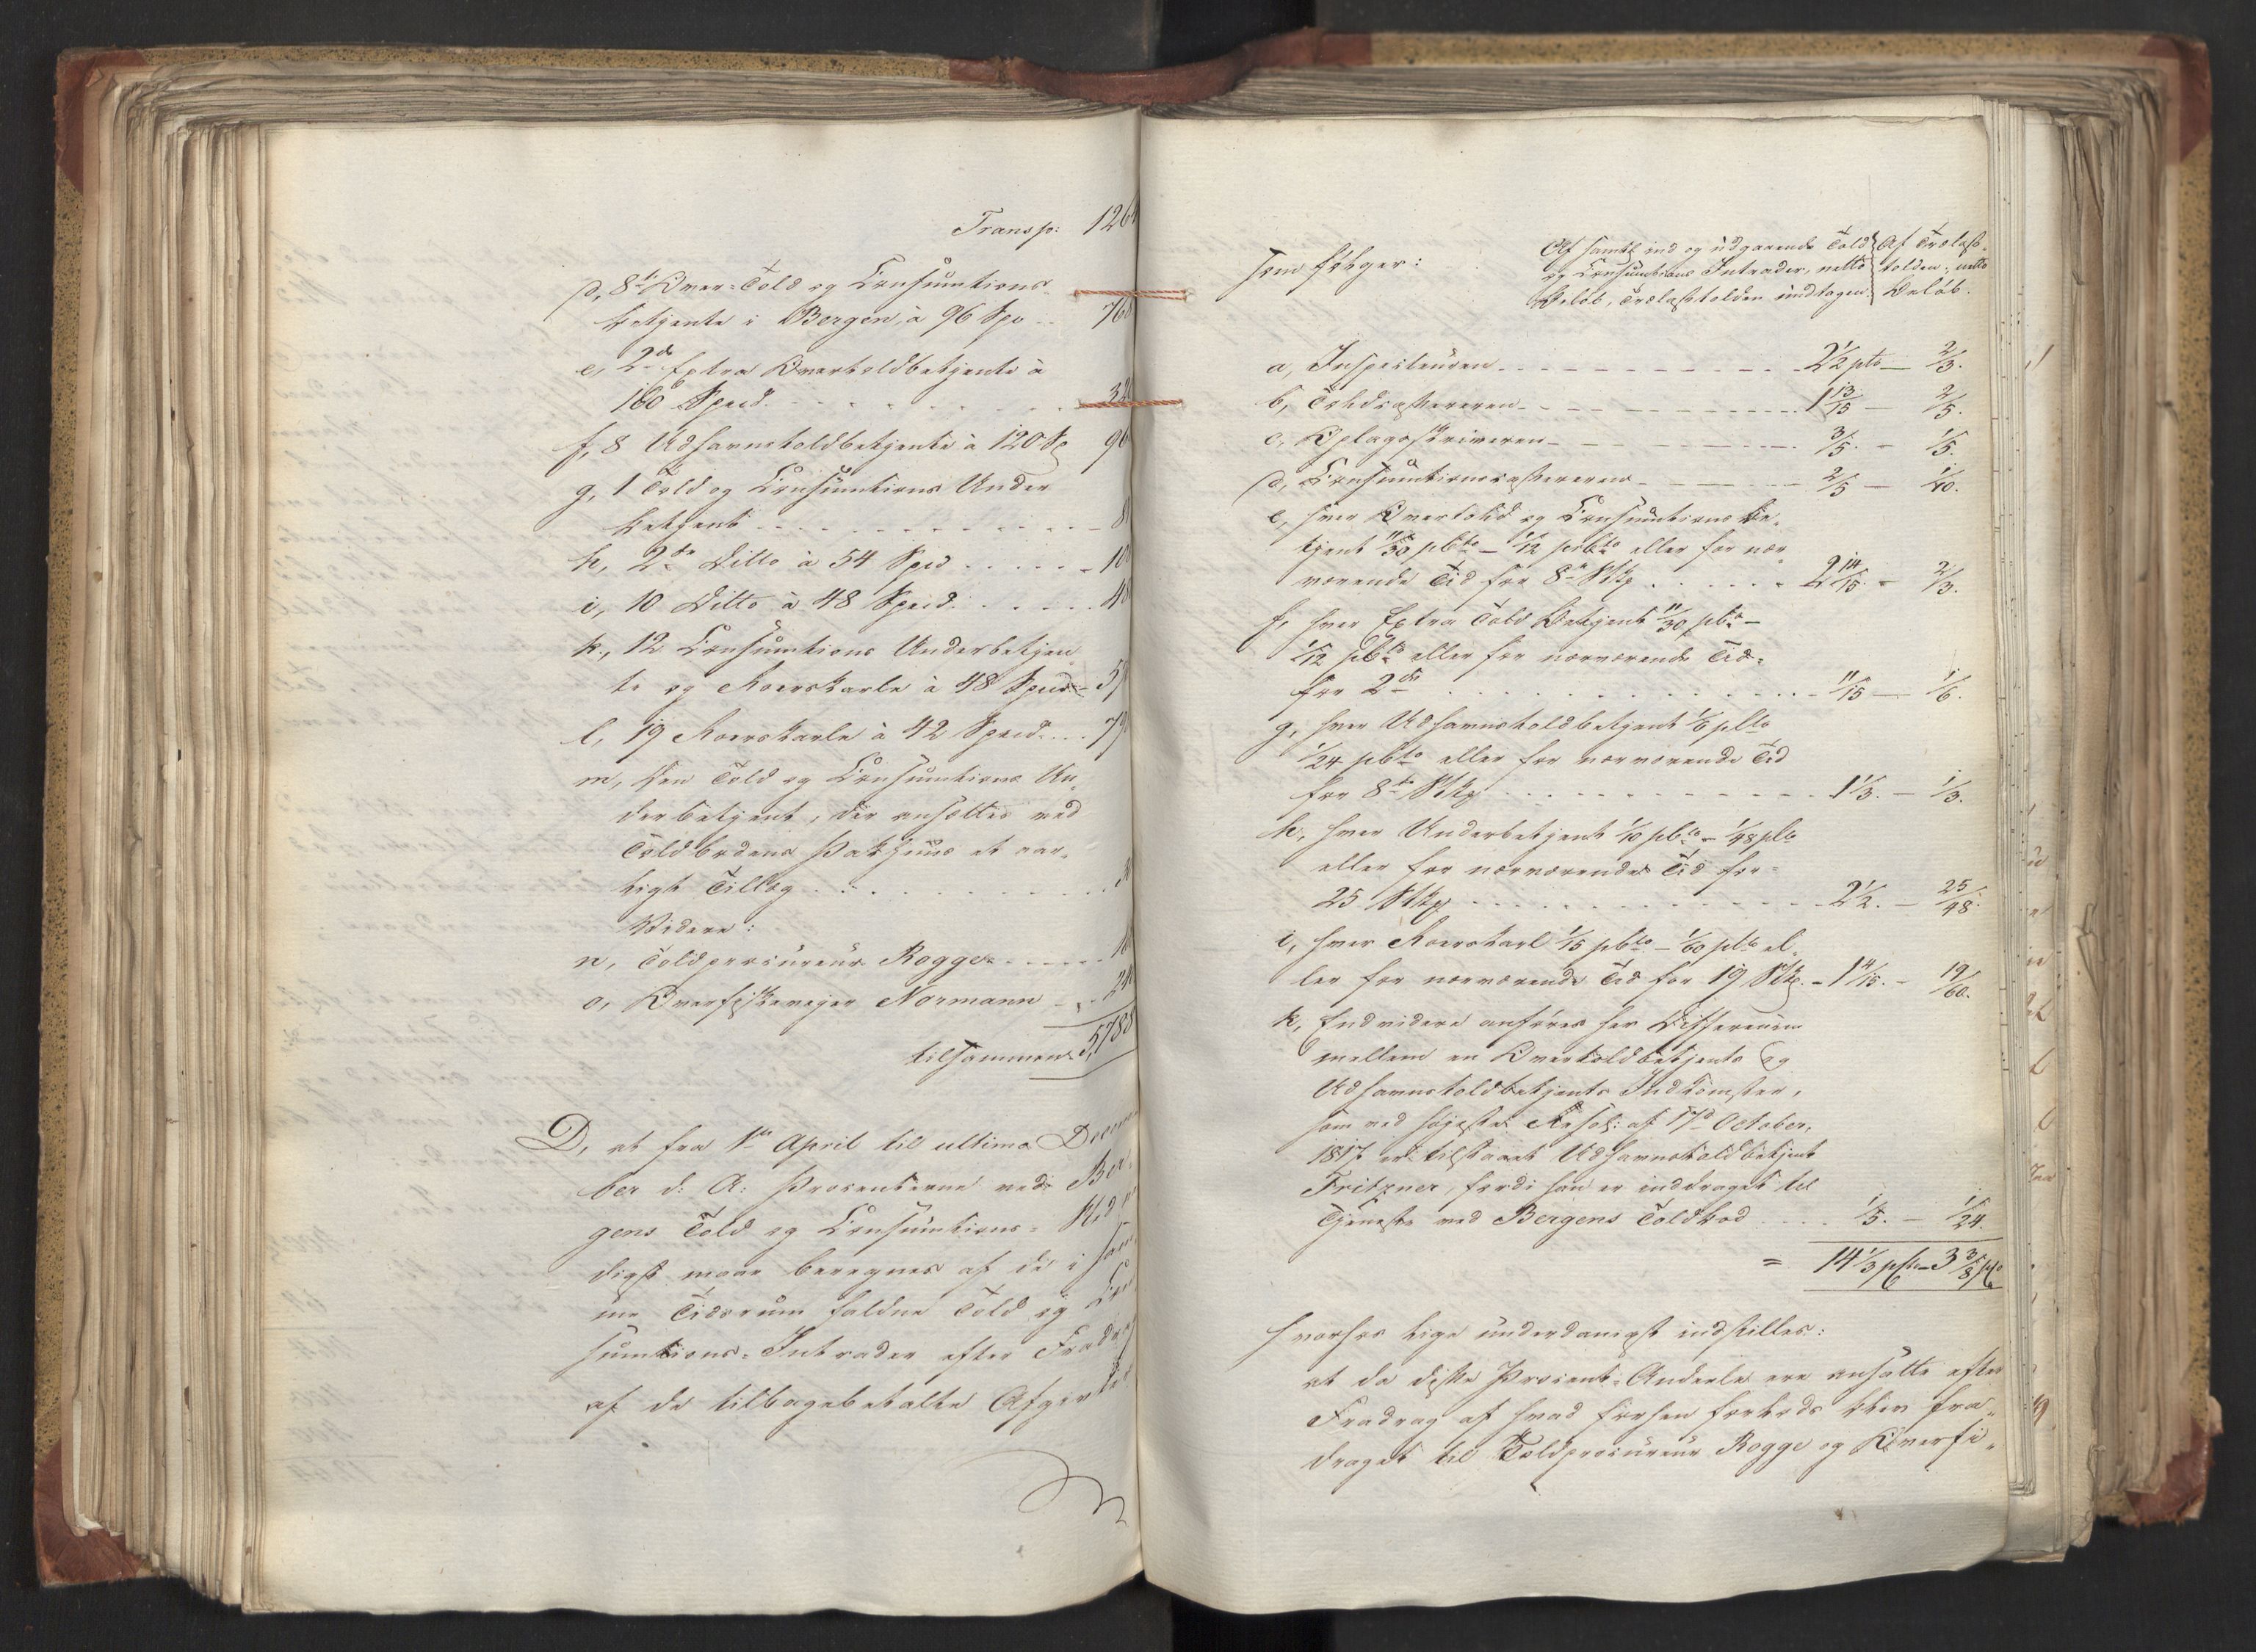 Transp: 1264
d, 8te Over-Told og Consumtions-
betjente i Bergen, à 96 Spd .. 768
e, 2de Extra Overtoldbetjente à
160 Specd. 320
f, 8 Udhavnstoldbetjente à 120 Sp 960
g, 1 Told og Consumtions Under
betjent
h, 2de Ditto à 54 Specd 108
i, 10 Ditto à 48 Specd. 480
k, 12 Consumtions Underbetjen
te og Roerskarle à 48 Specd 57
l, 19 Roerskarle à 42 Specd. 79
m, Den Told og Consumtions Un-
derbetjent, der ansættes ved
Toldbodens Pakhuus et aar-
ligt Tillæg
Videre:
n, Toldprocureur Rogge
o, Overfiskevejer Normann 240
tilsammen 5,788
D, at fra 1ste April til ultimo Decem
ber d: A: Procenterne ved Ber
gens Told og Consumtions-Sted
maae beregnes af de i sam
me Tidsrum faldne Told og Con
sumtions-Intrader efter Fradrag
af de tilbagebetalte Afgivter
som følger:
Af samtl ind og udgaaende Told Af Trælast-
og Consumtions Intrader, netto tolden, netto
Beløb, Trælasttolden undtagen. Beløb.
a, Inspecteuren 2 1/2 pCto — 2/3.
b, Toldcassereren 1 13/15 — 2/5.
c, Oplagsskriveren 3/5. — 1/5.
d, Consumtionscassereren 2/5 — 1/10.
e, hver Overtold og Consumtions Be-
tjent 11/30 pCto — 1/12 pCto eller for nær
værende Tid for 8te Stkr 2 14/15. — 2/3.
f, hver Extra Told Betjent 11/30 pCto —
1/12 pCto eller for nærværende Tid
for 2de 11/15 — 1/6.
g, hver Udhavnstoldbetjent 1/6 pCto
1/24 pCto eller for nærværende Tid
for 8te Stkr 1 1/3. — 1/3.
h, hver Underbetjent 1/10 pCto — 1/48 pCto
eller for nærværende Tid for
25 Stkr 2 1/2. — 25/48.
i, hver Roerskarl 1/15 pCto — 1/60 pCto el-
ler for nærværende Tid for 19 Stkr. 1 4/15. — 19/60.
k, Endvidere anføres her Differencen
mellem en Overtoldbetjents og
Udhavnstoldbetjents Indkomster,
som ved høieste Resol: af 17de October
1817 er tilstaaet Udhavnstoldbetjent
Fritzner, fordi han er inddraget til
Tjeneste ved Bergens Toldbod 1/5. — 1/24.
= 14 1/3 pCto — 3 3/8 pCto
hvorhos lige underdanigst indstilles:
at da disse Procent-Andeele ere ansatte efter
Fradrag af hvad forhen forlods blev fra-
draget til Toldprocureur Rogge og Overfi-